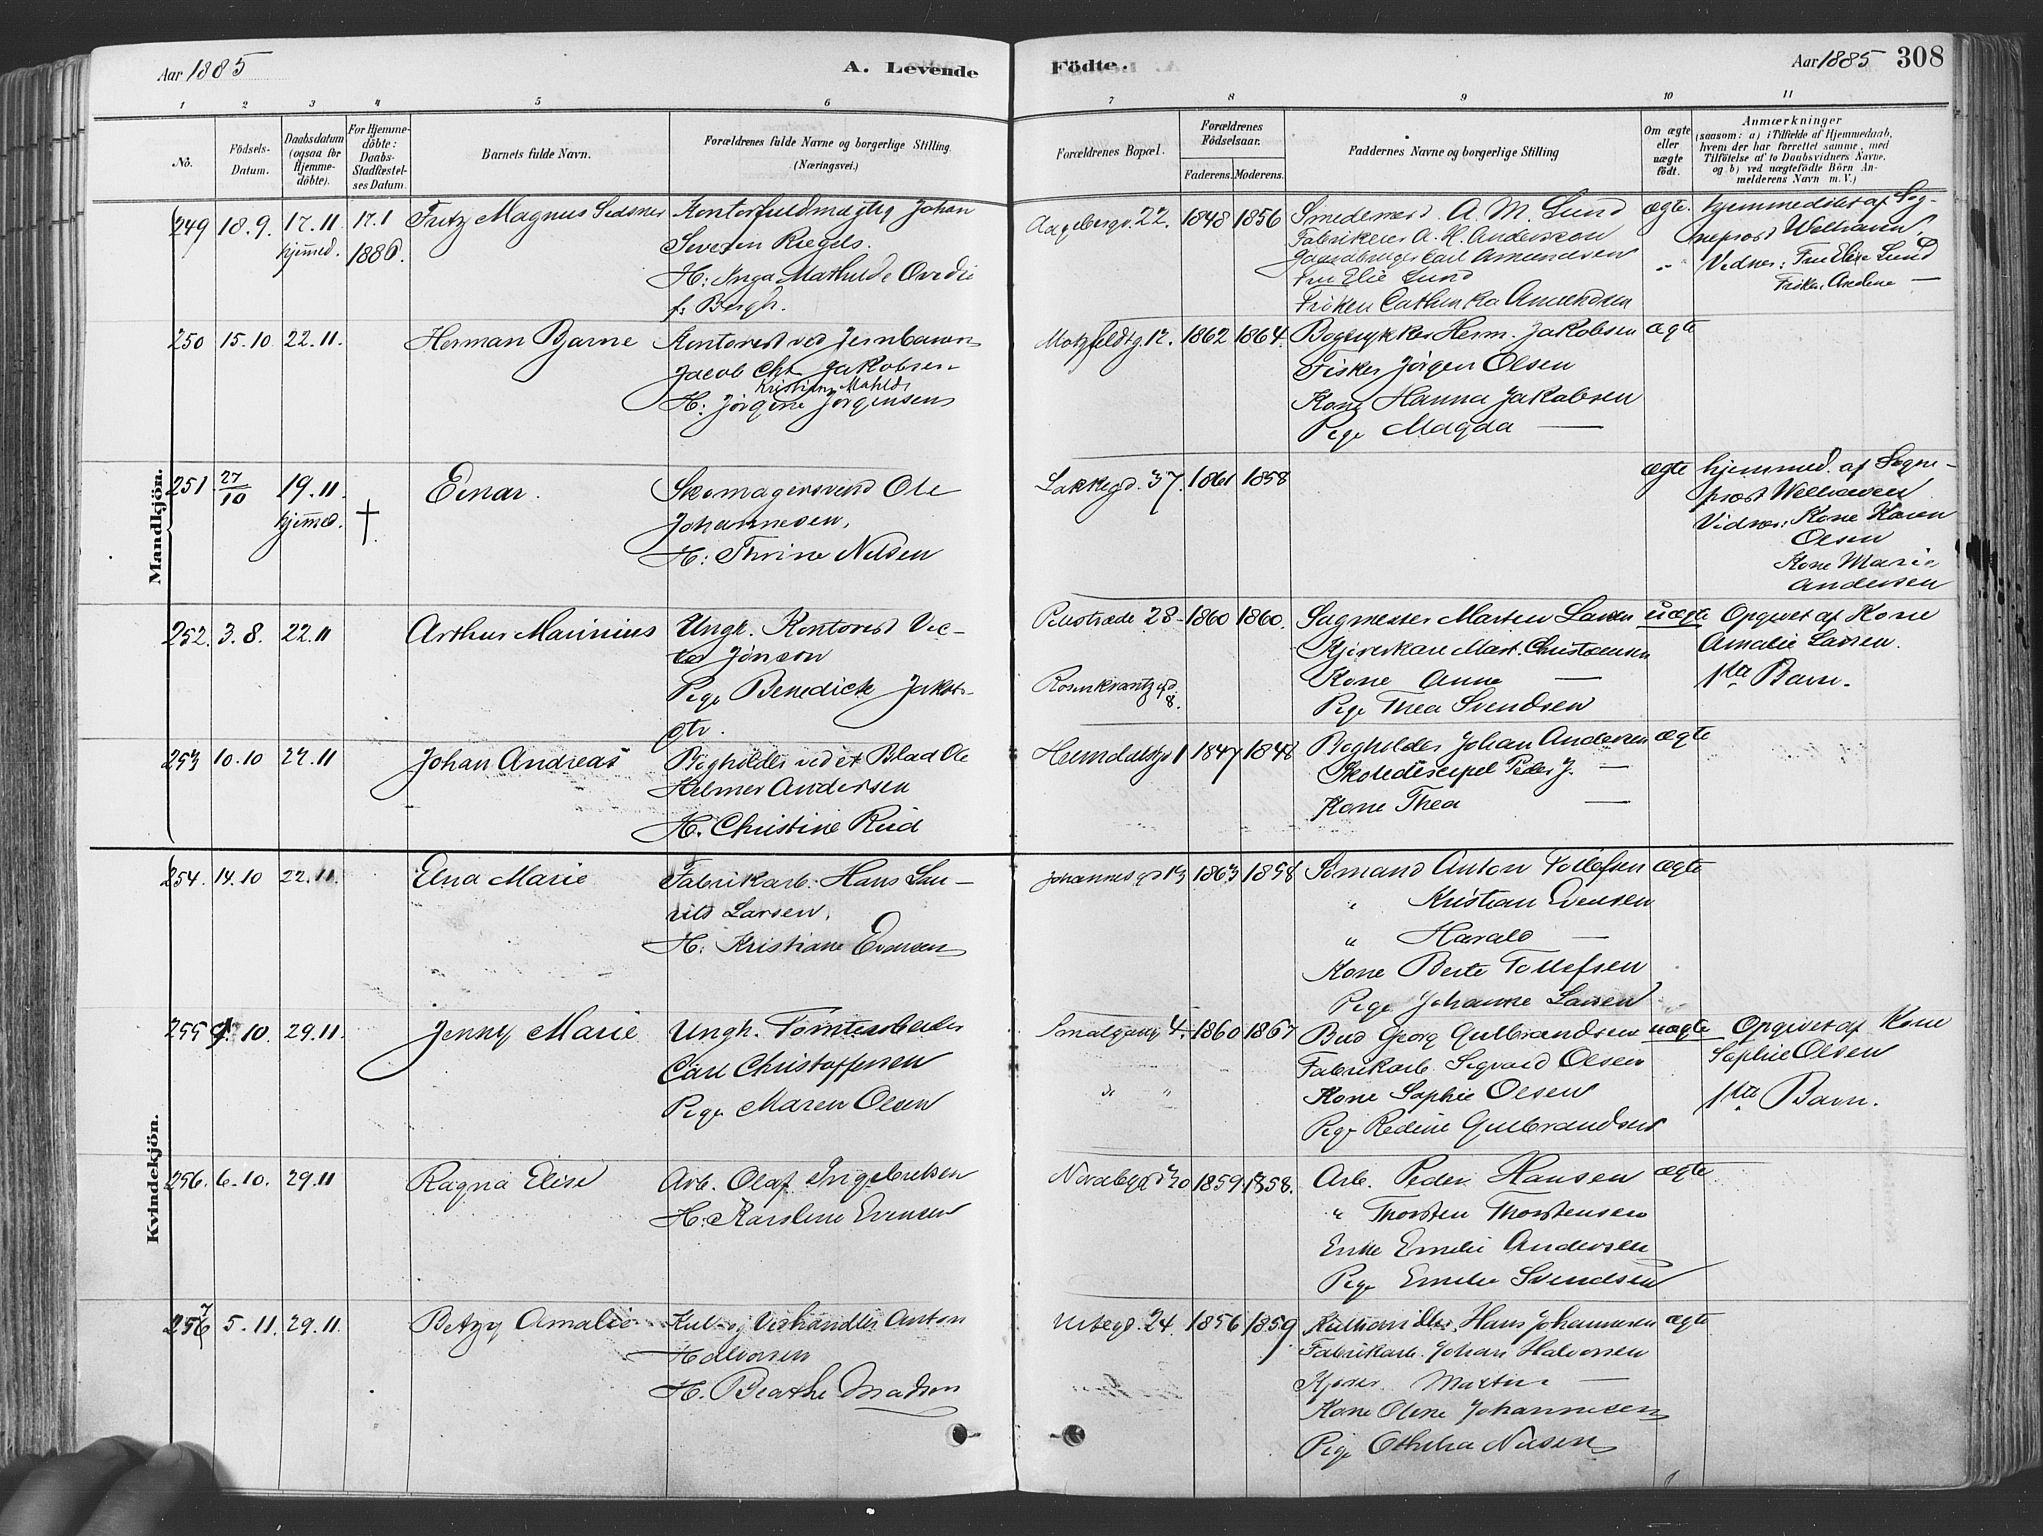 Aar 1885
A. Levende
Födte.
Aar 1885 308
1 2 3 4 5 6 7 8 9 10 11
No.
Födsels-
Datum.
Daabsdatum
(ogsaa for
Hjemme-
döbte).
For Hjemme-
döbte:
Daabs-
Stadfæstel-
ses Datum.
Barnets fulde Navn.
Forældrenes fulde Navne og borgerlige Stilling
(Næringsvei.)
Forældrenes Bopæl.
Forældrenes
Födselsaar.
Faderens. Moderens.
Faddernes Navne og borgerlige Stilling
Om ægte
eller
uægte
födt.
Anmærkninger
(saasom: a) i Tilfælde af Hjemmedaab,
hvem der har forrettet samme, med
Tilföielse af to Daabsvidners Navne,
og b) ved uægtefödte Börn An-
melderens Navn m. V.)
Mandkjön.
249 18.9. 17.11 hjemmed. 17.1 1886.
Fritz Magnus
Kontorfuldmægtig Johan
Severin Riegels.
H: Inga Mathilde Ovedie
f. Bergh.
22. 1848 1856
Smedemest. A. M. Lund
Fabrikeier A. H. Andersen
Gaardbruger Carl Amundsen
Fru Elie Lund
Frøken Cathinka Amundsen
ægte.
hjemmedöbt af Sog-
neprest Welhaven.
Vidner: Fru Elise Lund
Frøken —
250 15.10 22.11.
Herman Bjarne
Kontorist ved Jernbanen
Jacob Chr. Jakobsen
Kristiane Mathilde
H: Jørgine Jørgensen
Motzfeldtg. 12. 1862 1864.
Bogtrykker Herm. Jakobsen
Fisker Jørgen Olsen
Kone Hanna Jakobsen
Pige Magda —
ægte
251 27/10 19.11 hjemmed. †
Einar.
Skomagersvend Ole
Johannesen,
H: Thrine Nilsen
Lakkegd. 37. 1861 1858
ægte
hjemmed. af Sogne-
prest Welhaven
Vidner: Kone Karen
Olsen
Kone Marie
Andersen
252. 3.8. 22.11
Arthur Marinius
Ungk. Kontorist Vic-
tor Jönson
Pige Benedicte Jakobs-
dtr.
Pilestræde 28 1860 1860.
Rosenkrantzgd. 8.
Sagmester Martin Larsen
Kjørerkarl Mart. Christensen
Kone Anne —
Pige Thea Svendsen
uægte
Opgivet af Kone
Amalie Larsen.
1ste Barn.
253 10.10 22.11
Johan Andreas
Bogholder ved et Blad Ole
Helmer Andersen
H. Christine Riid
Heimdalsg. 1 1847 1848
Bogholder Johan Andersen
Skolediscipel Peder J. —
Kone Thea —
ægte
Kvindekjön.
254. 14.10 22.11.
Elna Marie
Fabrikarb. Hans Lau-
rits Larsen,
H: Kristiane Evensen
Johannesgd 13 1863 1858
Sømand Anton Tollefsen
" Kristian Evensen
" Harald —
Kone Berte Tollefsen
Pige Johanne Larsen
ægte
255 9.10. 29.11.
Jenny Marie
Ungk. Tomtearbeider
Carl Christoffersen
Pige Maren Olsen
Smalgang 4. 1860 1867
" "
Bud Georg Gulbrandsen
Fabrikarb. Sigvard Olsen
Kone Sophie Olsen
Pige Redine Gulbrandsen
uægte
Opgivet af Kone
Sophie Olsen
1ste Barn.
256. 6.10. 29.11
Ragna Elise
Arb. Olaf Ingebretsen
H: Karoline Evensen
Nordbygd 30 1859 1858.
Arb. Peder Hansen
" Thorsten Thorstensen
Enke Emelie Andersen
Pige Emilie Svendsen
ægte
257 5.11. 29.11.
Betzy Amalie
Kul- og Vedhandler Anton
Halvorsen
H. Beathe Madsen
24. 1856 1859
Hans Johannesen
Fabrikarb. Johan Halvorsen
Kjører. Martin —
Kone Oline Johannesen
Pige Othilia Nilsen
ægte